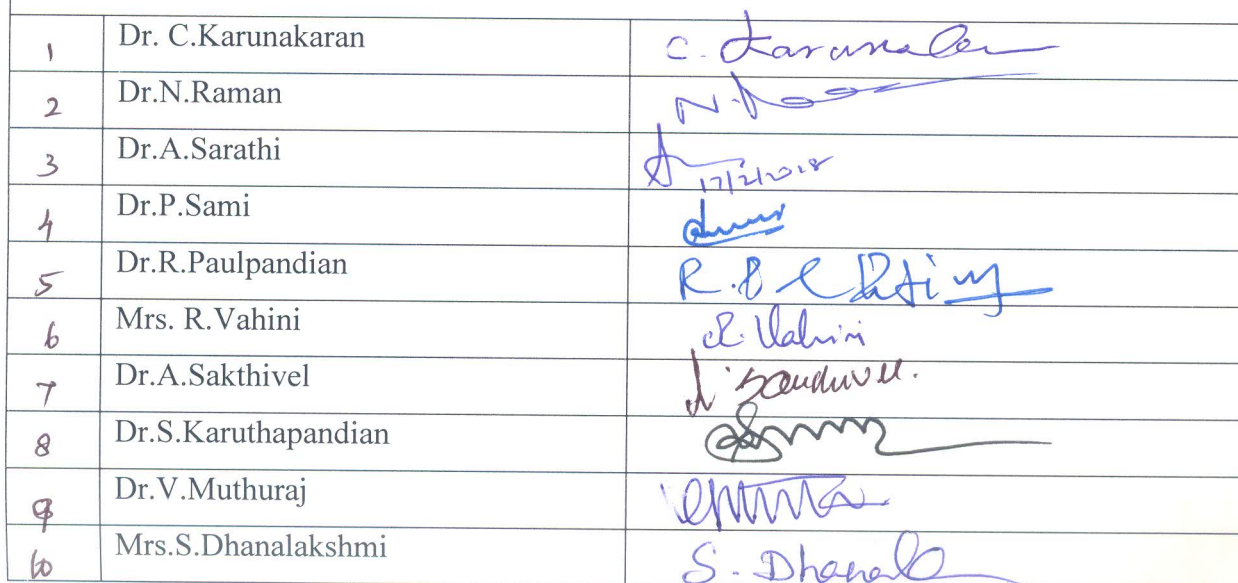 1 Dr. C.Karunakaran C. Karunakan
2 Dr.N.Raman N. Raman
3 Dr.A.Sarathi 17/2/2018
4 Dr.P.Sami
5 Dr.R.Paulpandian
6 Mrs. R.Vahini R. Vahini
7 Dr.A.Sakthivel
8 Dr.S.Karuthapandian
9 Dr.V.Muthuraj
10 Mrs.S.Dhanalakshmi S. Dhanal